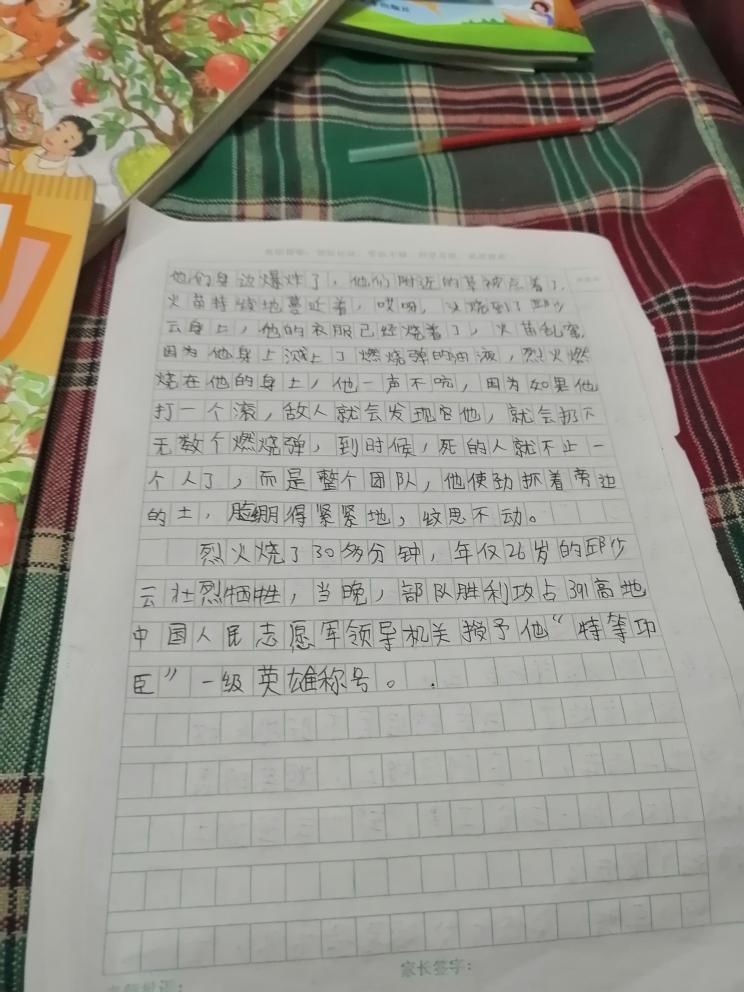 他们身边爆炸了，他们附近的草被点着了，
火苗持续地蔓延着，哎呀，火烧到了邱少
云身上，他的衣服已经烧着了，火苗乱窜，
因为他身上溅上了燃烧弹的油液，烈火燃
烧在他的身上，他一声不吭，因为如果他
打一个滚，敌人就会发现他，就会扔下
无数个燃烧弹，到时候，死的人就不止一
个人了，而是整个团队，他使劲抓着旁边
的土，脸绷得紧紧地，纹思不动。
烈火烧了30多分钟，年仅26岁的邱少
云壮烈牺牲，当晚，部队胜利攻占391高地
中国人民志愿军领导机关授予他“特等功
臣”一级英雄称号。.
家长签字：